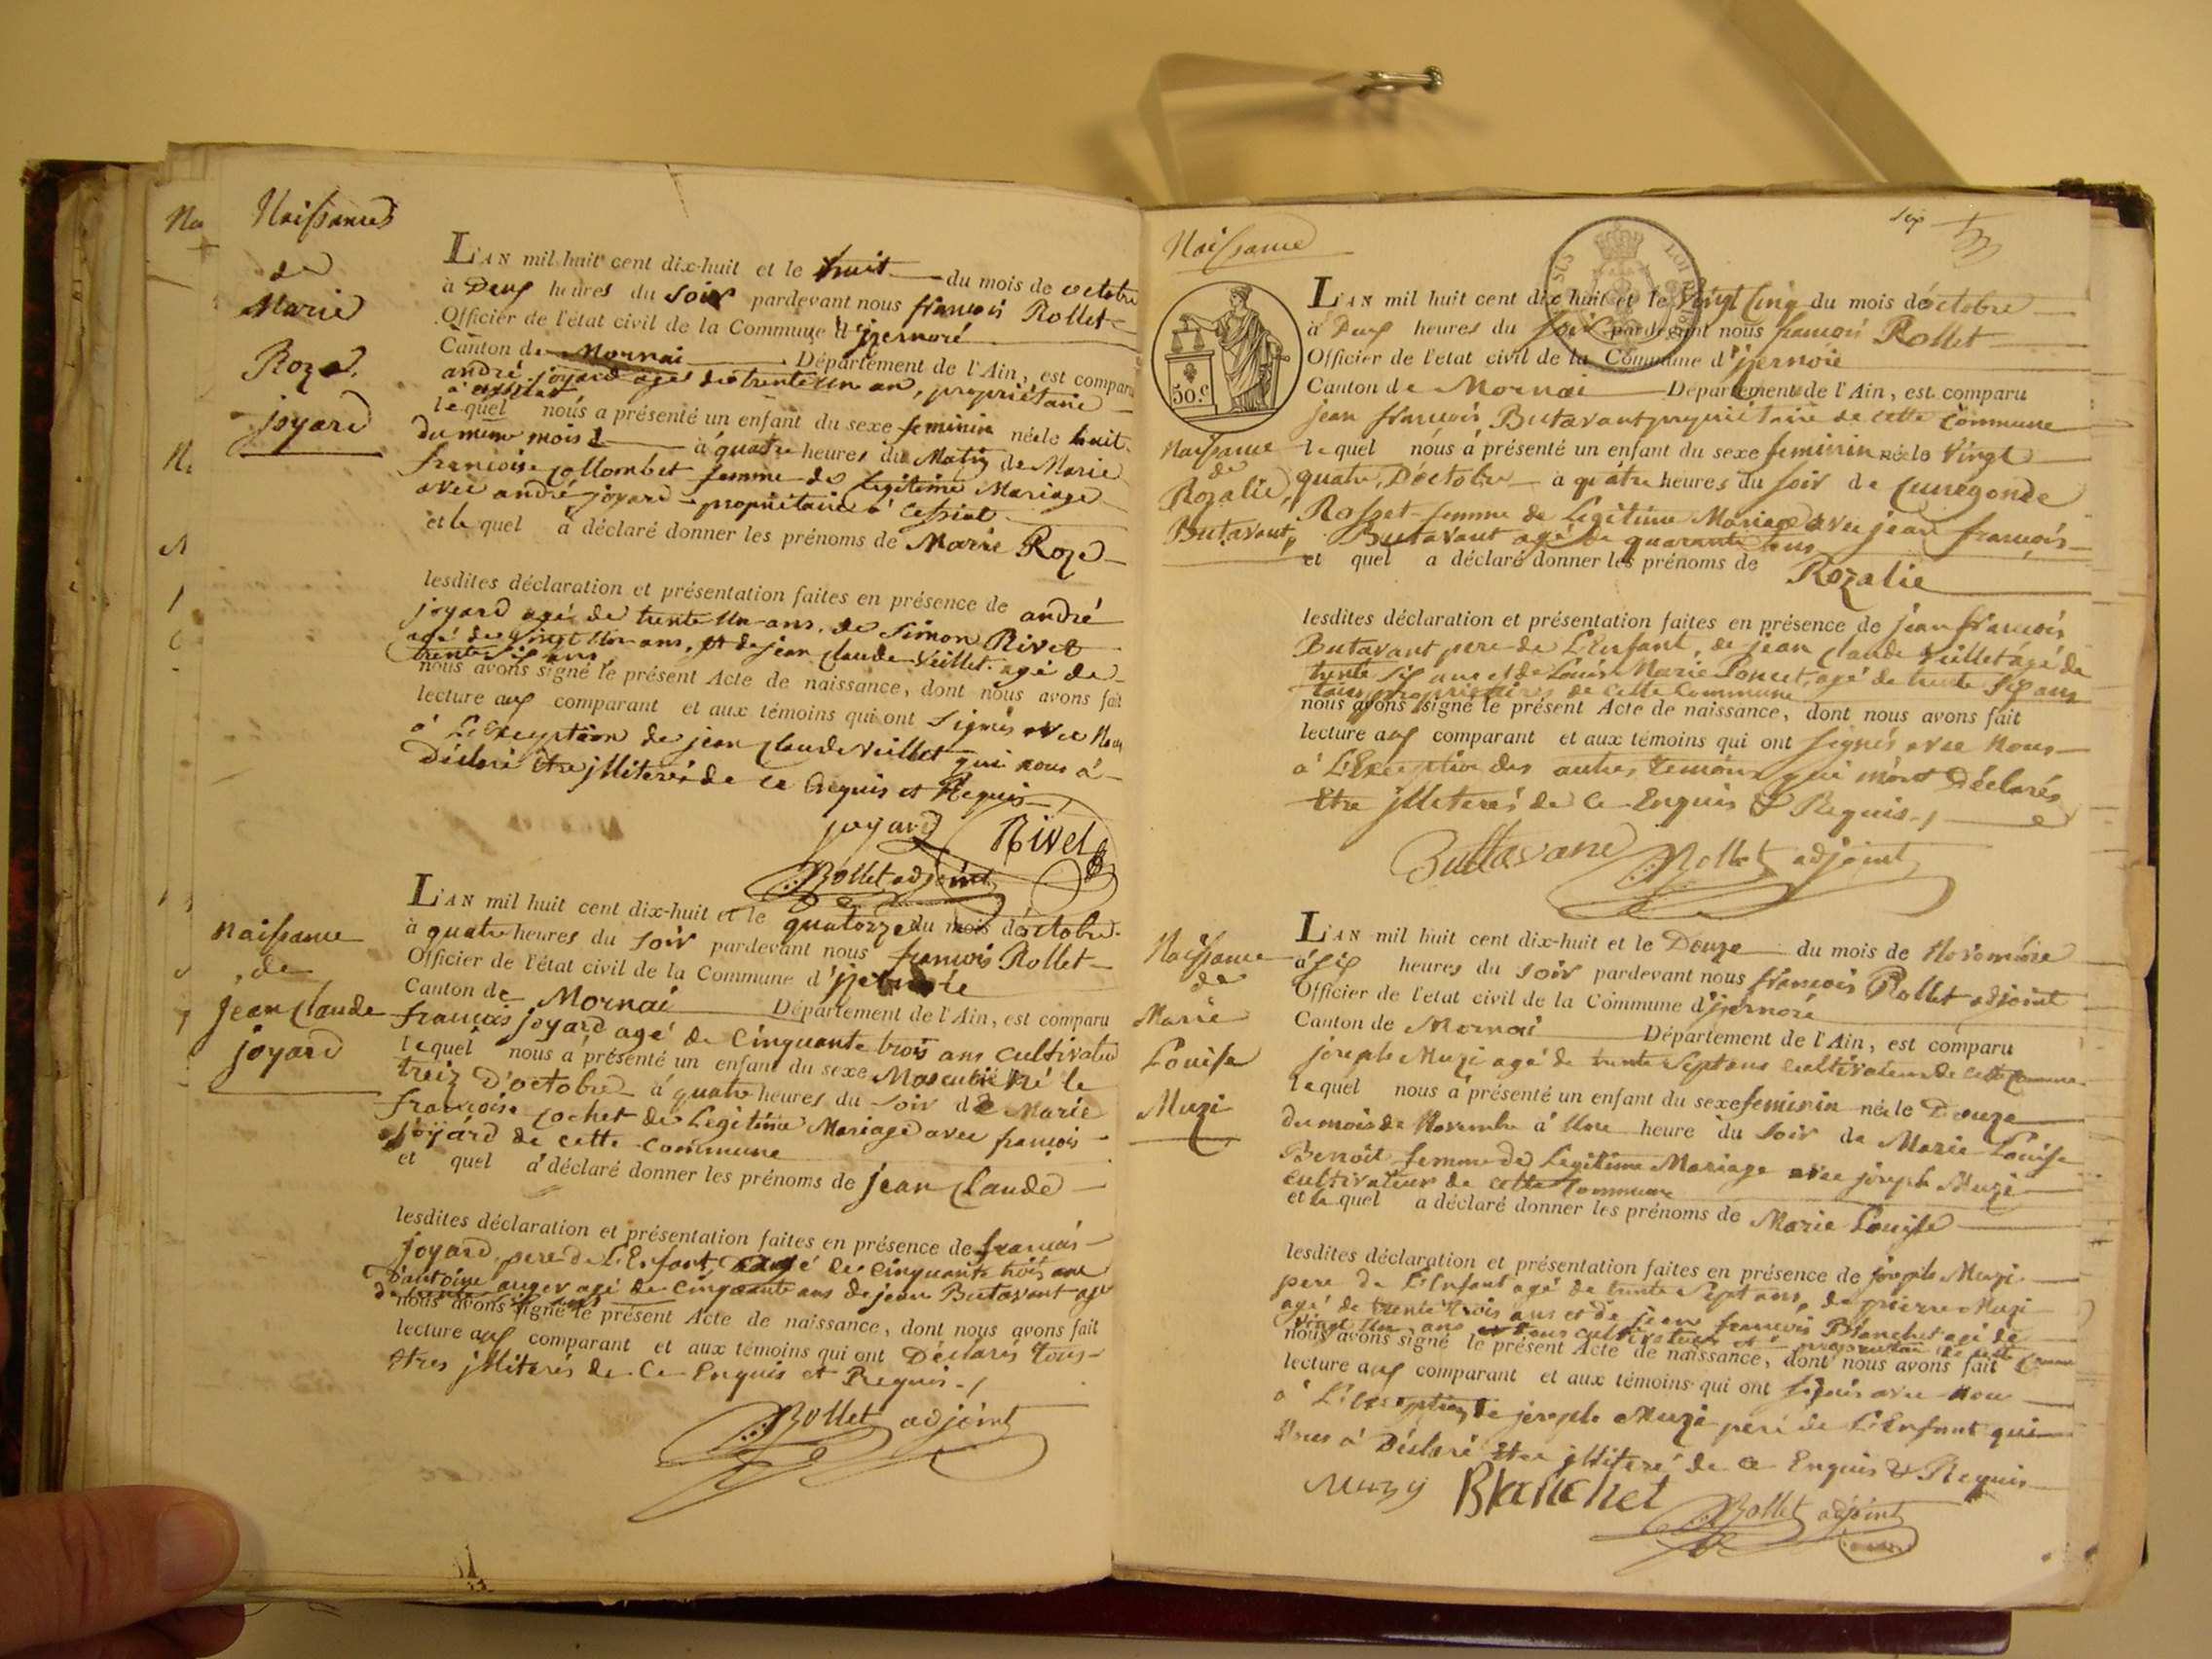 Naissances
de
Marie
Roze
joyard
L'AN mil huit cent dix-huit et le huit du mois de octobre
à Deux heures du soir pardevant nous françois Rollet
Officier de l'état civil de la Commune d'izernore
Canton de Mornai Département de l'Ain, est comparu
andré joyard agé de trente un an, propriétaire
à cessiat
lequel nous a présenté un enfant du sexe feminin née le huit
du meme mois à quatre heures du Matin de Marie
françoise collombet femme de legitime Mariage
avec andré joyard propriétaire a cessiat
et le quel a déclaré donner les prénoms de Marie Roze
lesdites déclaration et présentation faites en présence de andré
joyard agé de trente un ans, de Simon Rivet
agé de vingt un ans, et de jean claude veillet agé de
trente six ans
nous avons signé le présent Acte de naissance, dont nous avons fait
lecture aux comparant et aux témoins qui ont signés avec Nous
à L'Exception de jean claude veillet qui nous à
Déclaré être jlliteré de ce Enquis et Requis
joyard Rivet
Rollet adjoint
Naissance
de
jean Claude
joyard
L'AN mil huit cent dix-huit et le quatorze du mois d'octobre
à quatre heures du soir pardevant nous françois Rollet
Officier de l'état civil de la Commune d'izernore
Canton de Mornai Département de l'Ain, est comparu
françois joyard agé de Cinquante trois ans cultivateur
lequel nous a présenté un enfant du sexe Masculin né le
treiz d'octobre à quatre heures du soir de Marie
françoise cochet de Legitime Mariage avec françois
joyard de cette commune
et quel a déclaré donner les prénoms de jean Claude
lesdites déclaration et présentation faites en présence de françois
joyard pere de L'Enfant, agé de cinquante trois ans
D'antoine auger agé de Cinquante ans de jean Butavant agé
de trente six ans
nous avons signé le présent Acte de naissance, dont nous avons fait
lecture aux comparant et aux témoins qui ont Déclarés tous
Etres jlliterés de Ce Enquis et Requis
Rollet adjoint
six
Naissance
50.c
Naissance
de
Rozalie
Butavant
L'AN mil huit cent dix huit et le vingt Cinq du mois d'octobre
à Deux heures du soir pardevant nous françois Rollet
Officier de l'etat civil de la Commune d'izernore
Canton de Mornai Département de l'Ain, est comparu
jean françois Butavant propriétaire de cette Commune
le quel nous à présenté un enfant du sexe feminin née le vingt
quatre, D'octobre à quatre heures du soir de Cunegonde
Rosset femme de Legitime Mariage avec jean françois
Butavant agé de quarante ans
et quel a déclaré donner les prénoms de Rozalie
lesdites déclaration et présentation faites en présence de jean françois
Butavant pere de L'Enfant, de jean claude veillet agé de
trente six ans et de Louis Marie Poncet, agé de trente six ans
tous propriétaires de cette Commune
nous avons signé le présent Acte de naissance, dont nous avons fait
lecture aux comparant et aux témoins qui ont signés avec Nous
à L'Exception des autres temoins qui m'ont Déclarés
Etre jlliterés de Ce Enquis & Requis
Buttavand Rollet adjoint
Naissance
de
Marie
Louise
Muzi
L'AN mil huit cent dix-huit et le Douze du mois de Novembre
à six heures du soir pardevant nous françois Rollet adjoint
Officier de l'etat civil de la Commune d'izernore
Canton de Mornai Département de l'Ain, est comparu
joseph Muzi agé de trente Sept ans cultivateur de cette Commune
lequel nous à présenté un enfant du sexe feminin née le Douze
du mois de Novembre à Une heure du soir de Marie Louise
Benoit femme de Legitime Mariage avec joseph Muzi
cultivateur de cette Commune
et le quel a déclaré donner les prénoms de Marie Louise
lesdites déclaration et présentation faites en présence de joseph Muzi
pere de L'Enfant agé de trente Sept ans, de pierre Muzi
agé de trente trois ans et de jean françois Blanchet agé de
vingt un ans tous cultivateur
nous avons signé le présent Acte de naissance, dont nous avons fait
lecture aux comparant et aux témoins qui ont signés avec Nou
à L'Exception de joseph Muzi pere de L'Enfant qui
Nous à Déclaré Etre jlliteré de ce Enquis & Requis
Muzy Blanchet
Rollet adjoint